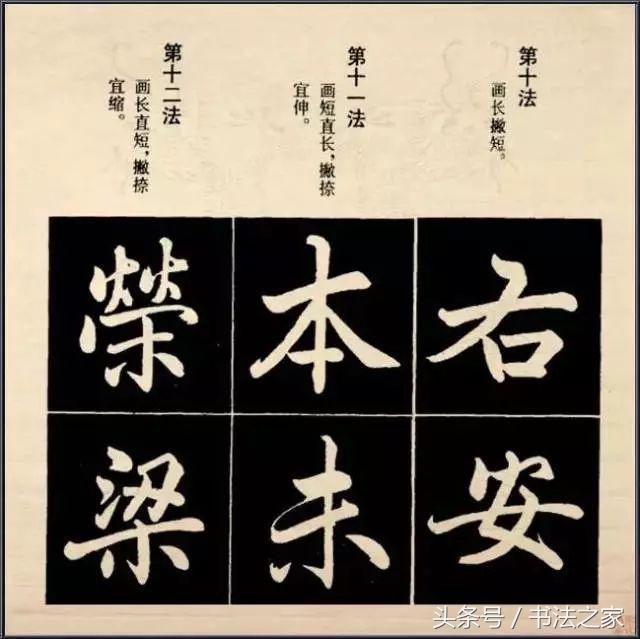 第十法
画长撇短。
右
安
第十一法
画短直长，撇捺
宜伸。
本
未
第十二法
画长直短，撇捺
宜缩。
榮
梁
头条号 / 书法之家